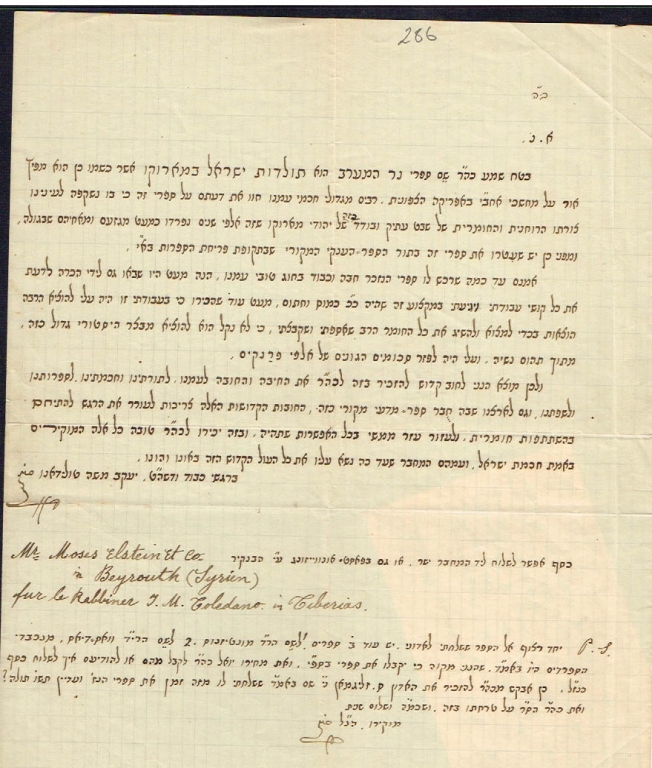 286
ב״ה
א. נ.
בטח שמע כה״ר שם ספרי נר המערב הוא תולדות ישראל במארוקו אשר כשמו כן הוא מפיץ
אור על מחשכי אחב״י באפריקה הצפונית. רבים מגדולי חכמי עמנו חוו את דעתם על ספרי זה כי בו נשקפה לעינינו
צורתו הרוחנית והחומרית של שבט עתיק ובודד כזה של יהודי מארוקו שזה אלפי שנים נפרדו כמעט מגזעם ומאחיהם שבגולה,
ומפני כן יש שעטרו את ספרי זה בתור הספר הענקי המקורי שבתקופת פריחת הספרות באי׳.
אמנם עד כמה שרכש לו ספרי הנזכר חבה וכבוד בחוג טובי עמנו, הנה מעט היו שבאו גם לידי הכרה לדעת
את כל קושי עבודתי ויגיעתי במקצוע זה שהיה כ״כ כמוס וחתום, מעט עוד שהכירו כי בעבודתי זו היה עלי להוציא הרבה
הוצאות בכדי למצוא ולהשיג את כל החומר הרב שאספתי ושקבצתי, כי לא נקל הוא להוציא מבצר היסטורי גדול כזה,
מתוך תהום נשיה, ועלי היה לפזר סכומים הגונים של אלפי פרנקים.
ולכן מוצא הנני לחוב קדוש להזכיר בזה לכה״ר את החיבה והחובה לעמנו, לתורתינו וחכמתינו, לספרותנו
ולשפתנו, וגם לארצנו שבה חֻבר ספר מדעי מקורי כזה, החובות הקדושות האלה צריכות לעורר את הרגש להתיחס
בהשתתפות חומרית, ולעזור עזר ממשי בכל האפשרות שתהיה, ובזה יכירו לכה״ר טובה כל אלה המוקירים
באמת חכמת ישראל, ועמהם המחבר שעד כה נשא עליו את כל העול הקדוש הזה באונו והונו.
ברגשי כבוד ודשה״ט, יעקב משה טולידאנו
כסף אפשר לשלוח ליד המחבר ישר, או גם בפאסט אנווייזונג ע״י הבנקיר
Mr. Moses Elstein et Co.
in Beyrouth (Syrien)
fur le Rabbiner J. M. Toledano in Tiberias.
P. S. יחד רצוף אל הספר ששלחתי לאדוני, יש עוד ב׳ ספרים 1 לשם הר״ר 2 לשם הר״ד
הספרדים היו באמ״ד, שהנני מקוה כי יקבלו את ספרי בכספי, ואת מחירו יואל כה״ר לקבל מהם או להודיעם איך לשלוח כסף
כנז״ל. כן אבקש מכה״ר להזכיר את האדון ס. זליגמאן נ״י שם באמ״ד ששלחתי לו מזה זמן את ספרי הנז׳ ועדיין
ואת כה״ר הס״ר על טרחתו בזה. ושלום שבת
מוקירו, הנ״ל